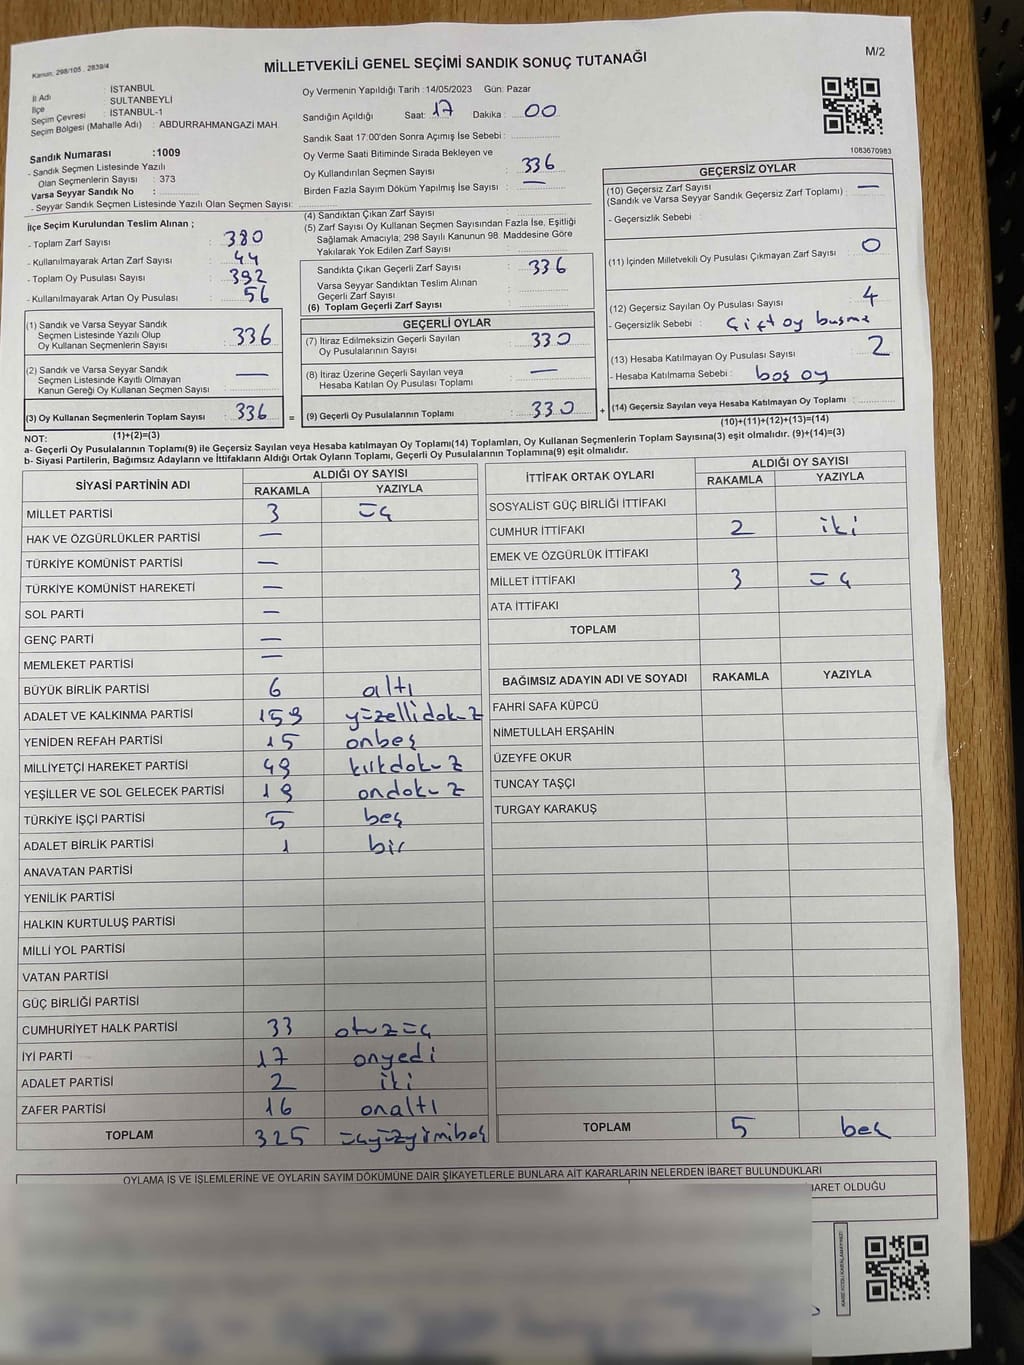 Kanun: 298/105 , 2839/4
M/2
MİLLETVEKİLİ GENEL SEÇİMİ SANDIK SONUÇ TUTANAĞI
İl Adı : İSTANBUL
İlçe : SULTANBEYLİ
Seçim Çevresi : İSTANBUL-1
Seçim Bölgesi (Mahalle Adı) : ABDURRAHMANGAZİ MAH.
Sandık Numarası :1009
- Sandık Seçmen Listesinde Yazılı
Olan Seçmenlerin Sayısı : 373
Varsa Seyyar Sandık No :
- Seyyar Sandık Seçmen Listesinde Yazılı Olan Seçmen Sayısı:
Oy Vermenin Yapıldığı Tarih :14/05/2023 Gün: Pazar
Sandığın Açıldığı Saat: 17 Dakika : 00
Sandık Saat 17:00'den Sonra Açımış İse Sebebi :
Oy Verme Saati Bitiminde Sırada Bekleyen ve
Oy Kullandırılan Seçmen Sayısı : 336
Birden Fazla Sayım Döküm Yapılmış İse Sayısı : —
1083670983
İlçe Seçim Kurulundan Teslim Alınan ;
- Toplam Zarf Sayısı : 380
- Kullanılmayarak Artan Zarf Sayısı : 44
- Toplam Oy Pusulası Sayısı : 392
- Kullanılmayarak Artan Oy Pusulası : 56
(1) Sandık ve Varsa Seyyar Sandık
Seçmen Listesinde Yazılı Olup
Oy Kullanan Seçmenlerin Sayısı : 336
(2) Sandık ve Varsa Seyyar Sandık
Seçmen Listesinde Kayıtlı Olmayan
Kanun Gereği Oy Kullanan Seçmen Sayısı : —
(3) Oy Kullanan Seçmenlerin Toplam Sayısı : 336 =
(1)+(2)=(3)
(4) Sandıktan Çıkan Zarf Sayısı :
(5) Zarf Sayısı Oy Kullanan Seçmen Sayısından Fazla İse, Eşitliği
Sağlamak Amacıyla; 298 Sayılı Kanunun 98. Maddesine Göre
Yakılarak Yok Edilen Zarf Sayısı :
Sandıkta Çıkan Geçerli Zarf Sayısı : 336
Varsa Seyyar Sandıktan Teslim Alınan
Geçerli Zarf Sayısı :
(6) Toplam Geçerli Zarf Sayısı :
GEÇERLİ OYLAR
(7) İtiraz Edilmeksizin Geçerli Sayılan
Oy Pusulalarının Sayısı : 330
(8) İtiraz Üzerine Geçerli Sayılan veya
Hesaba Katılan Oy Pusulası Toplamı : —
(9) Geçerli Oy Pusulalarının Toplamı : 330 +
GEÇERSİZ OYLAR
(10) Geçersiz Zarf Sayısı : —
(Sandık ve Varsa Seyyar Sandık Geçersiz Zarf Toplamı)
- Geçersizlik Sebebi :
(11) İçinden Milletvekili Oy Pusulası Çıkmayan Zarf Sayısı : 0
(12) Geçersiz Sayılan Oy Pusulası Sayısı : 4
- Geçersizlik Sebebi : Çift oy basma
(13) Hesaba Katılmayan Oy Pusulası Sayısı : 2
- Hesaba Katılmama Sebebi : boş oy
(14) Geçersiz Sayılan veya Hesaba Katılmayan Oy Toplamı :
(10)+(11)+(12)+(13)=(14)
NOT:
a- Geçerli Oy Pusulalarının Toplamı(9) ile Geçersiz Sayılan veya Hesaba katılmayan Oy Toplamı(14) Toplamları, Oy Kullanan Seçmenlerin Toplam Sayısına(3) eşit olmalıdır. (9)+(14)=(3)
b- Siyasi Partilerin, Bağımsız Adayların ve İttifakların Aldığı Ortak Oyların Toplamı, Geçerli Oy Pusulalarının Toplamına(9) eşit olmalıdır.
SİYASİ PARTİNİN ADI ALDIĞI OY SAYISI
RAKAMLA YAZIYLA
MİLLET PARTİSİ 3 üç
HAK VE ÖZGÜRLÜKLER PARTİSİ —
TÜRKİYE KOMÜNİST PARTİSİ —
TÜRKİYE KOMÜNİST HAREKETİ —
SOL PARTİ —
GENÇ PARTİ —
MEMLEKET PARTİSİ —
BÜYÜK BİRLİK PARTİSİ 6 altı
ADALET VE KALKINMA PARTİSİ 159 yüzellidokuz
YENİDEN REFAH PARTİSİ 15 onbeş
MİLLİYETÇİ HAREKET PARTİSİ 49 kırkdokuz
YEŞİLLER VE SOL GELECEK PARTİSİ 19 ondokuz
TÜRKİYE İŞÇİ PARTİSİ 5 beş
ADALET BİRLİK PARTİSİ 1 bir
ANAVATAN PARTİSİ
YENİLİK PARTİSİ
HALKIN KURTULUŞ PARTİSİ
MİLLİ YOL PARTİSİ
VATAN PARTİSİ
GÜÇ BİRLİĞİ PARTİSİ
CUMHURİYET HALK PARTİSİ 33 otuzüç
İYİ PARTİ 17 onyedi
ADALET PARTİSİ 2 iki
ZAFER PARTİSİ 16 onaltı
TOPLAM 325 üçyüzyirmibeş
İTTİFAK ORTAK OYLARI ALDIĞI OY SAYISI
RAKAMLA YAZIYLA
SOSYALİST GÜÇ BİRLİĞİ İTTİFAKI
CUMHUR İTTİFAKI 2 iki
EMEK VE ÖZGÜRLÜK İTTİFAKI
MİLLET İTTİFAKI 3 üç
ATA İTTİFAKI
TOPLAM
BAĞIMSIZ ADAYIN ADI VE SOYADI RAKAMLA YAZIYLA
FAHRİ SAFA KÜPCÜ
NİMETULLAH ERŞAHİN
ÜZEYFE OKUR
TUNCAY TAŞÇI
TURGAY KARAKUŞ
TOPLAM 5 beş
OYLAMA İŞ VE İŞLEMLERİNE VE OYLARIN SAYIM DÖKÜMÜNE DAİR ŞİKAYETLERLE BUNLARA AİT KARARLARIN NELERDEN İBARET BULUNDUKLARI
İBARET OLDUĞU